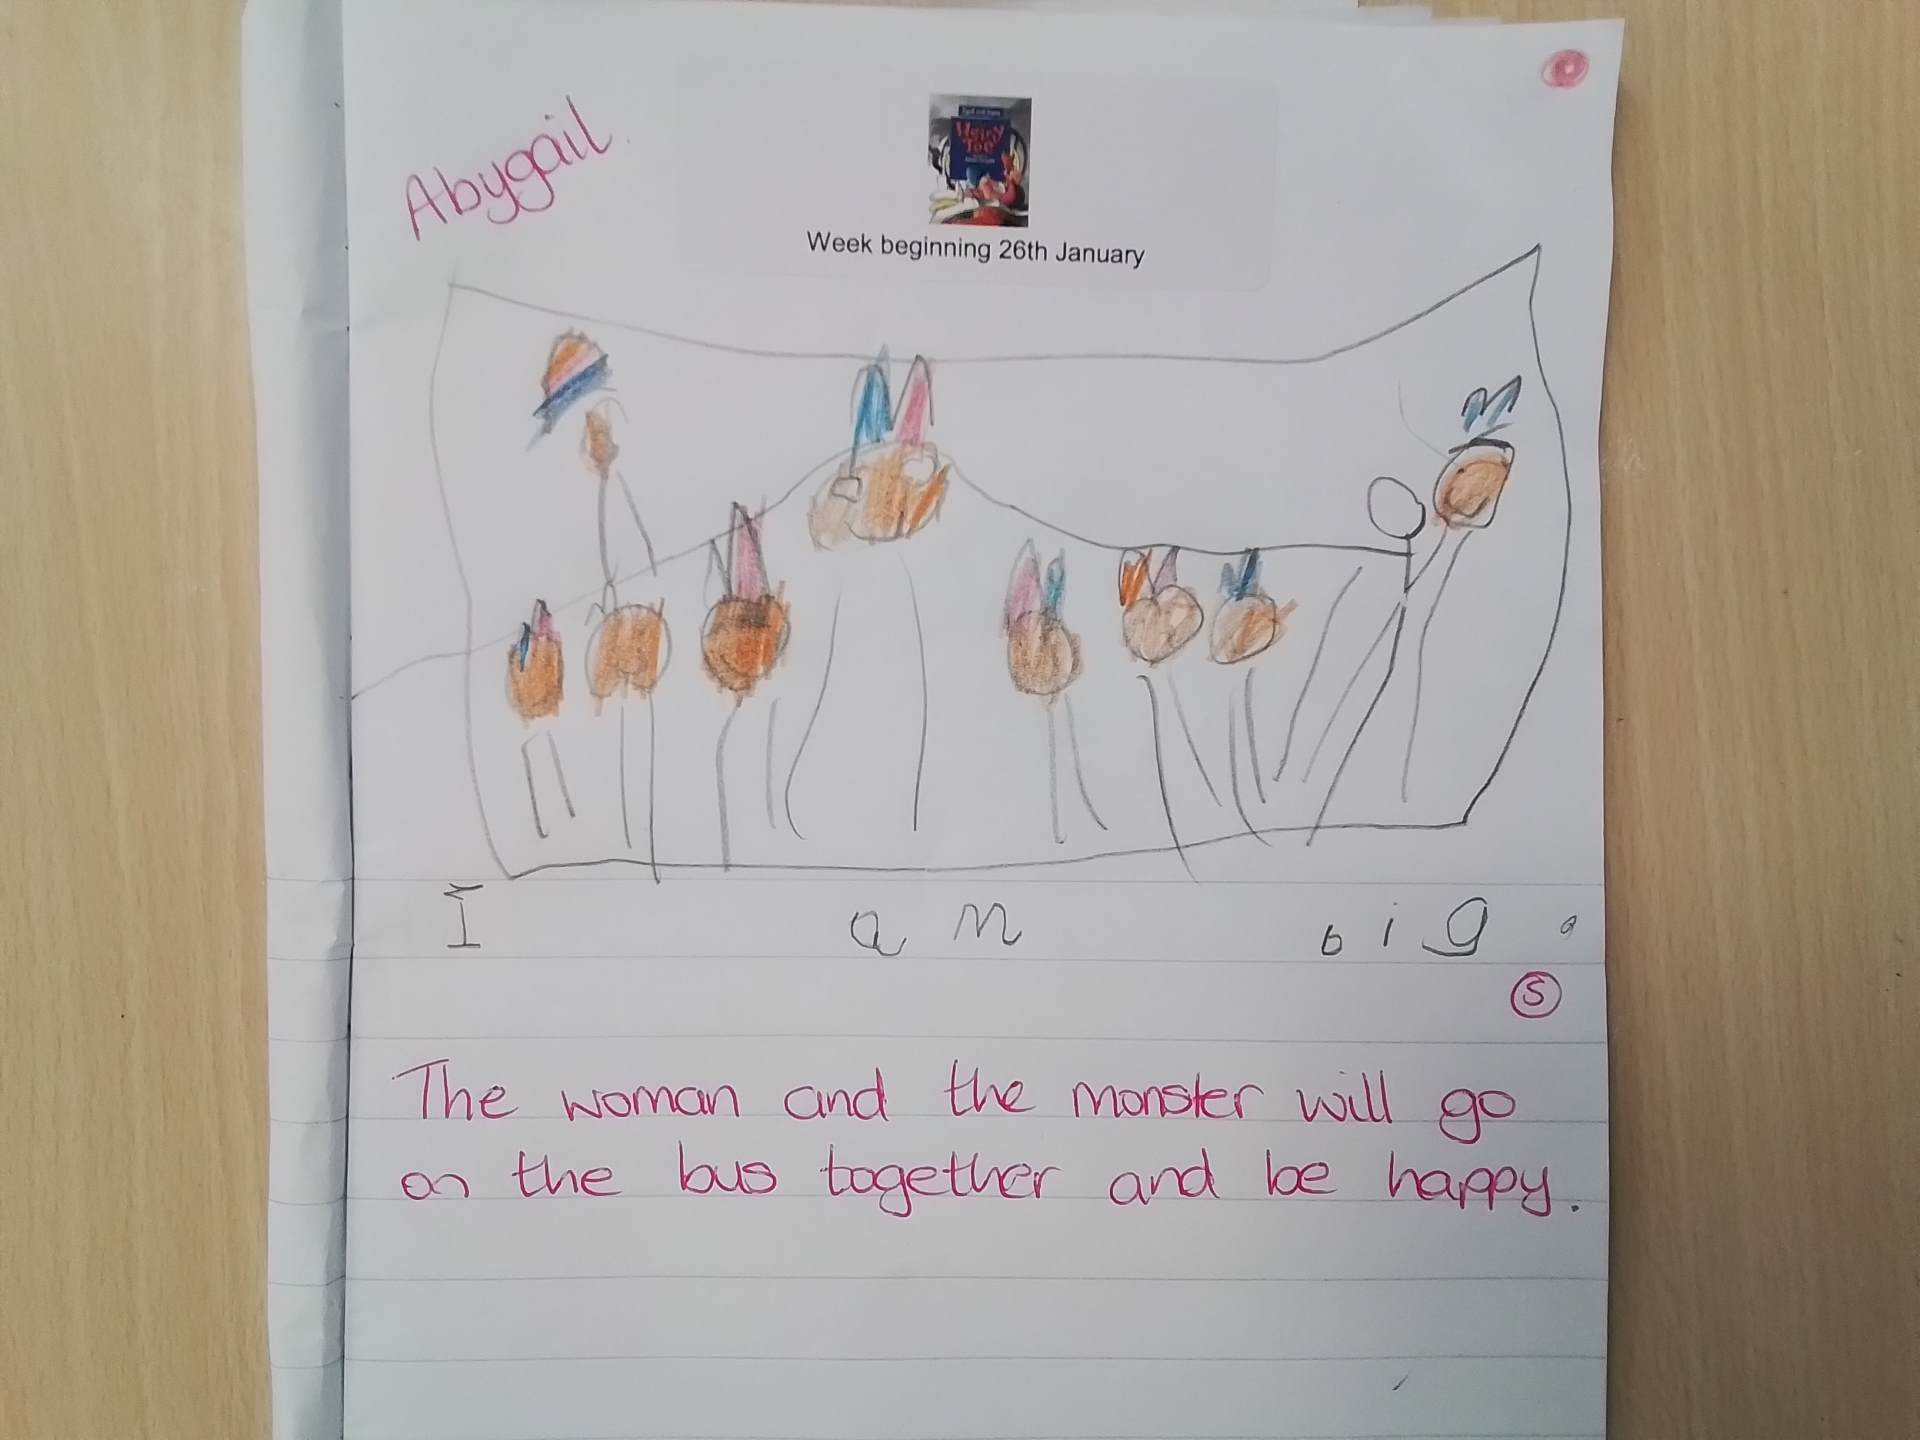 Abygail
Hairy Toe
Week beginning 26th January
I am big.
S
The woman and the monster will go
on the bus together and be happy.